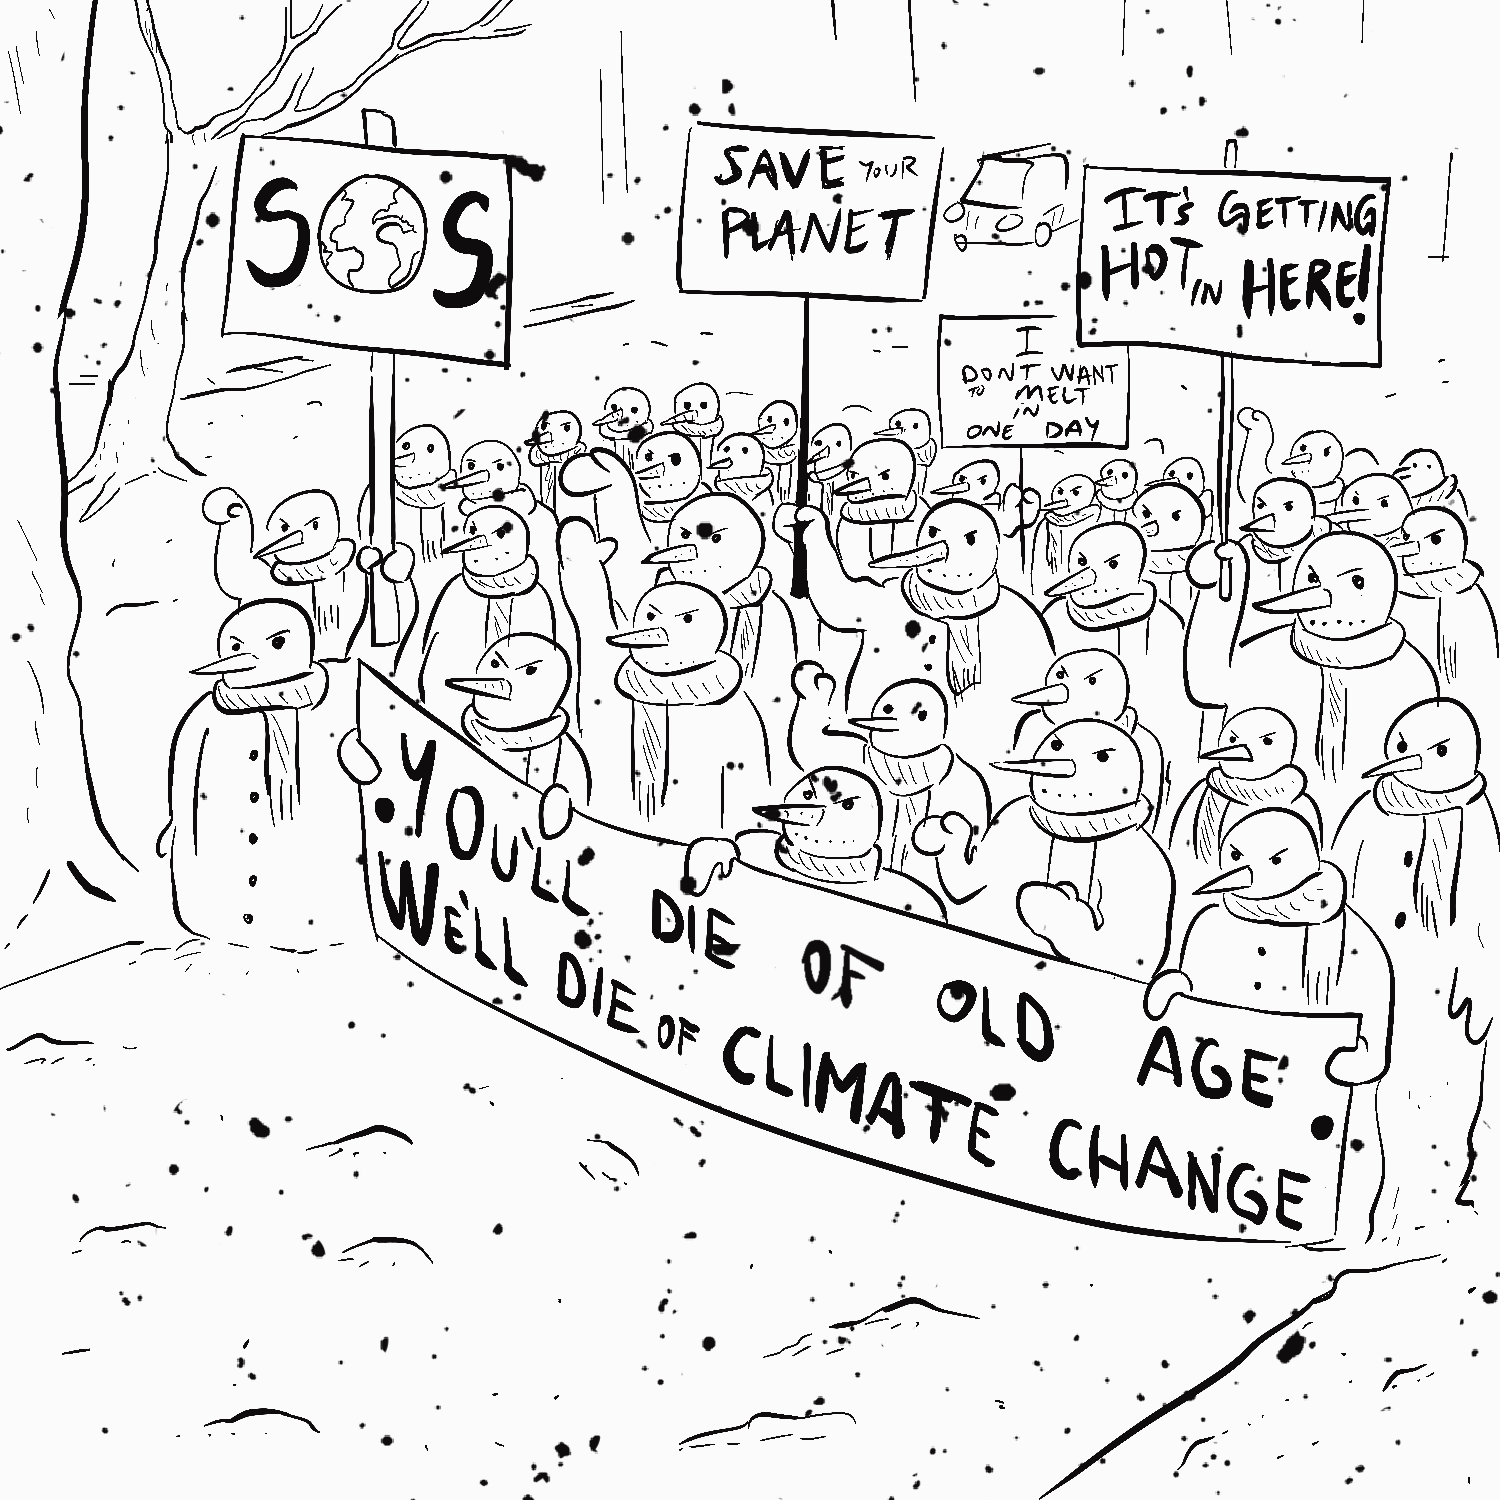 SOS
SAVE YOUR
PLANET
IT'S GETTING
HOT IN HERE!
I
DONT WANT
TO MELT
IN
ONE DAY
YOU'LL DIE OF OLD AGE
WE'LL DIE OF CLIMATE CHANGE